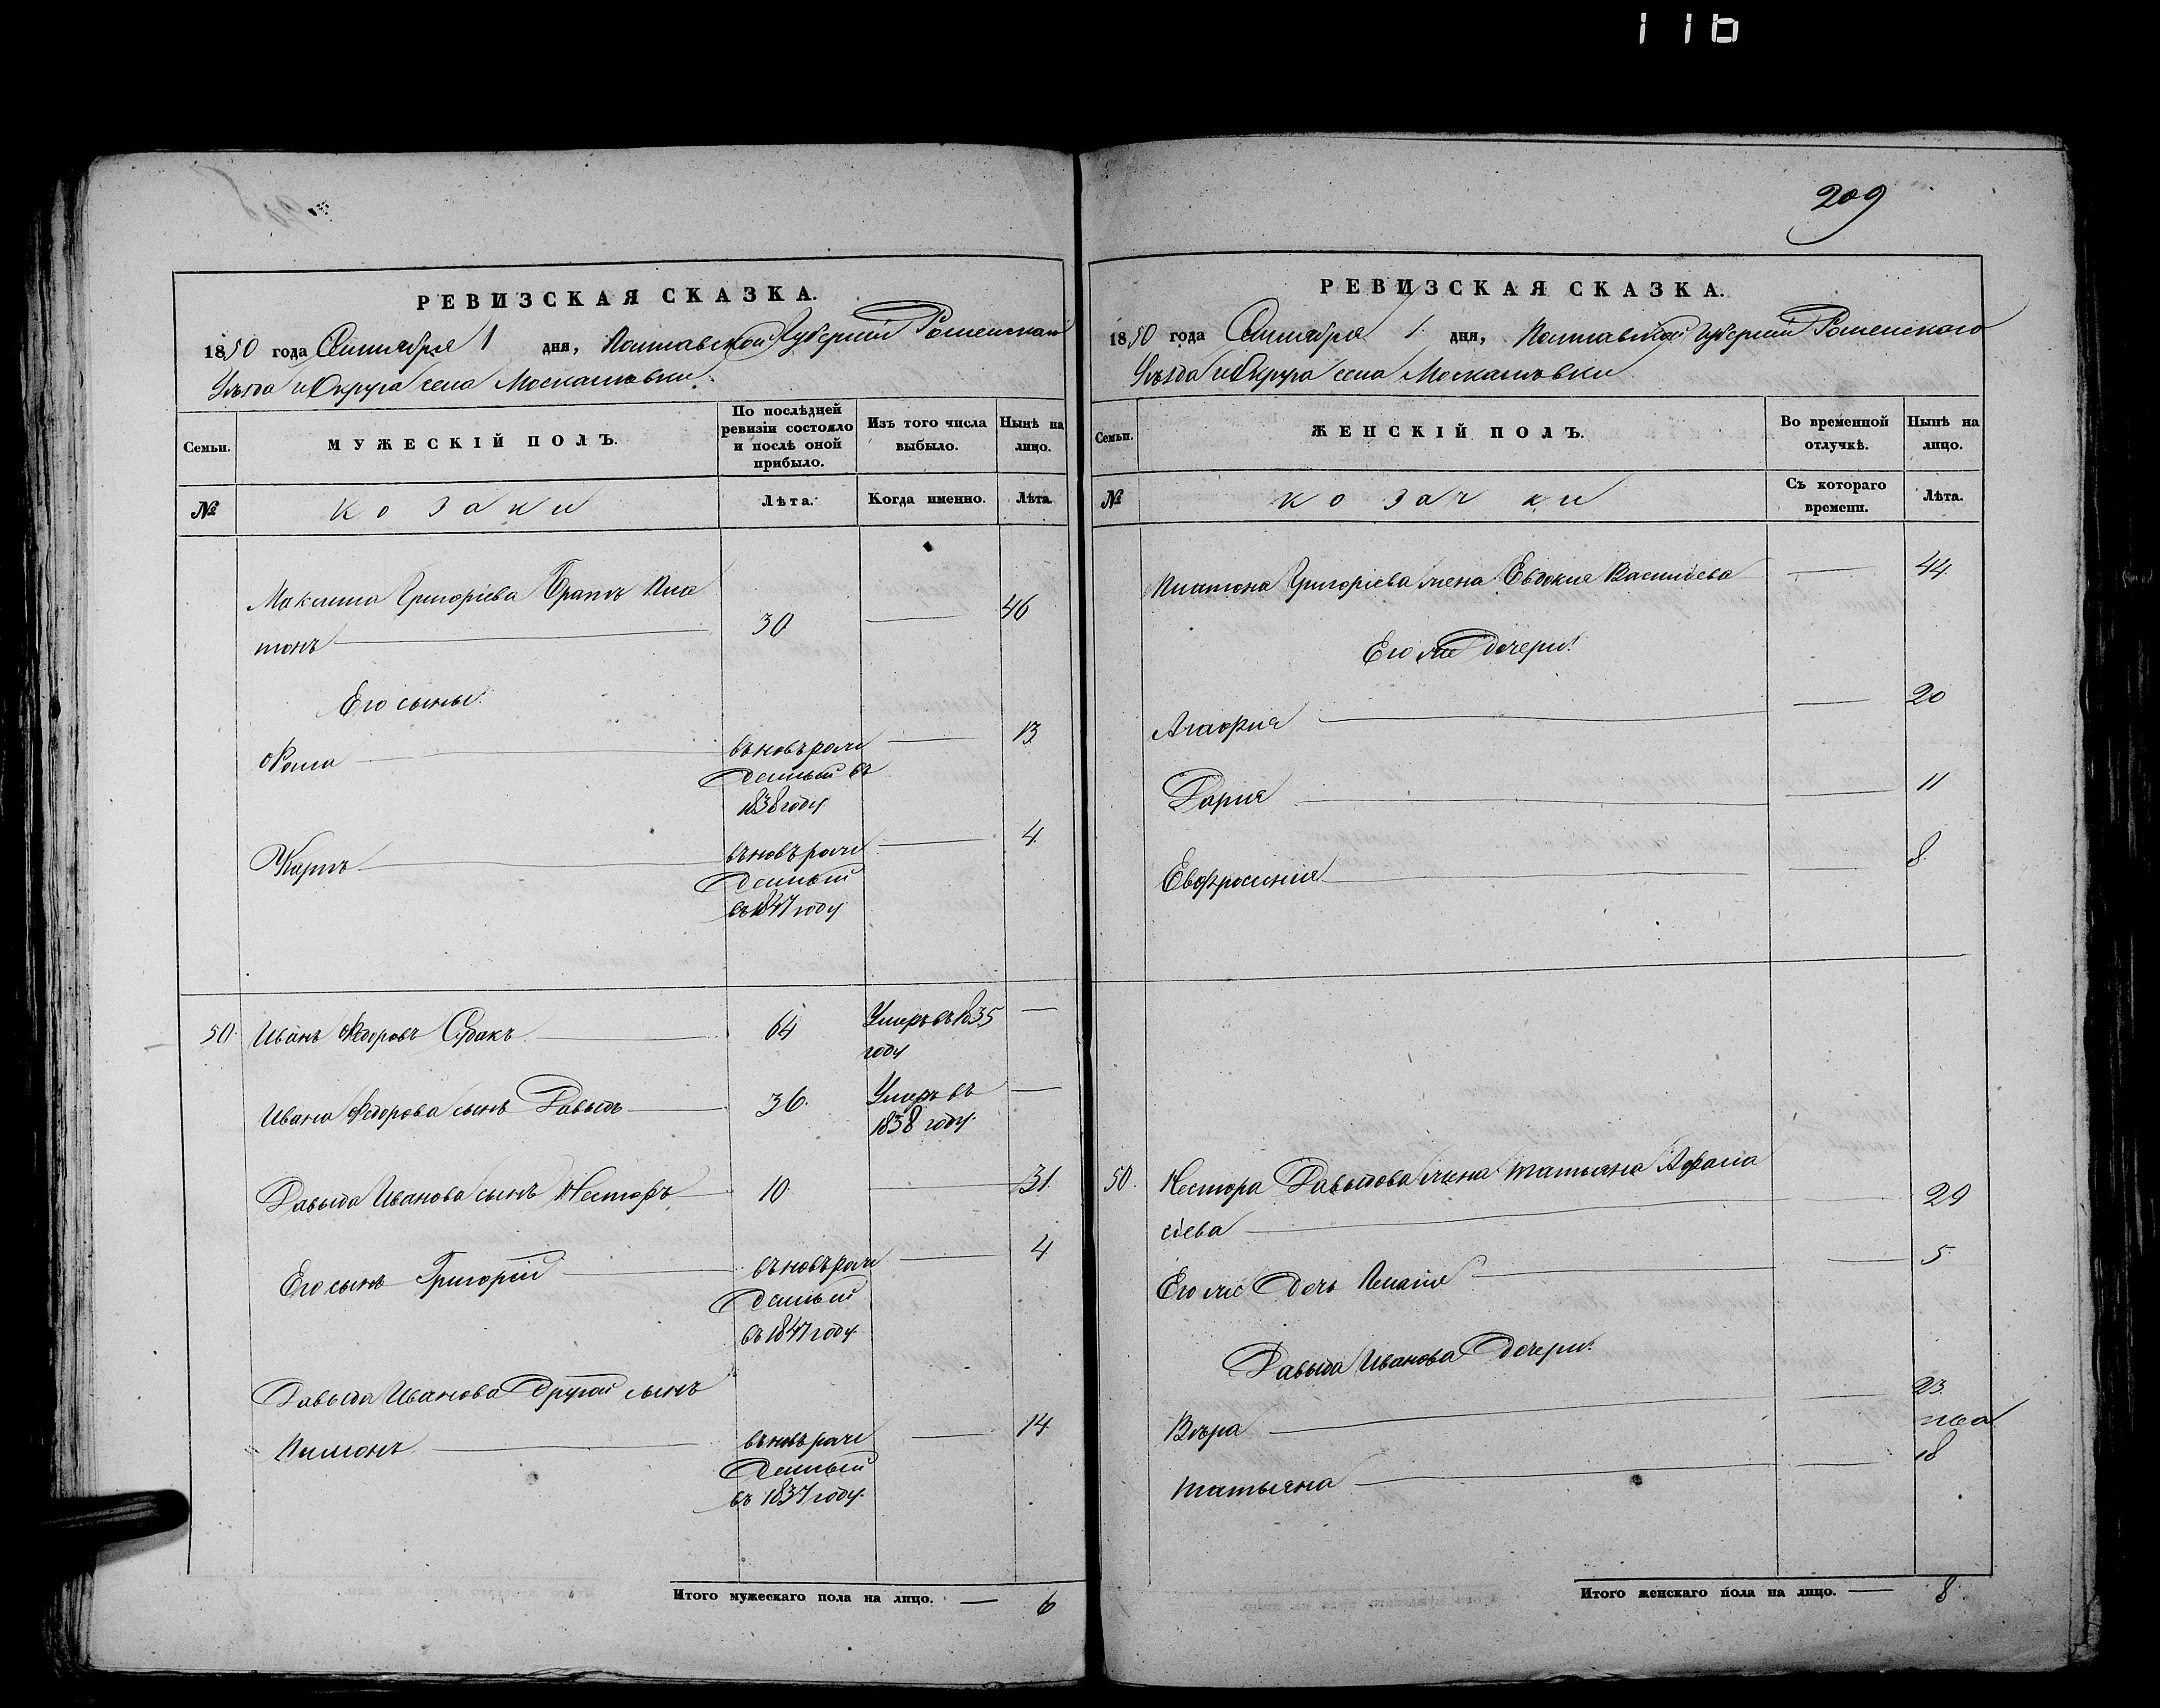 116
209
РЕВИЗСКАЯ СКАЗКА.
1850 года Сентября 1 дня, Полтавской Губерніи Роменскаго
Уѣзда и Округа села Москалювки
Семьи.
МУЖЕСКІЙ ПОЛЪ.
По послѣдней ревизіи состояло и послѣ оной прибыло.
Изъ того числа выбыло.
Нынѣ на лицо.
№
козаки
Лѣта.
Когда именно.
Лѣта
Максима Григоріева Братъ Пла
тонъ 30 46
Его сыны:
Фома въновь рож 13
денный въ
1838 году
Карпъ въновь рож 4
денный
въ 1847 году
50 Иванъ Федоровъ Судакъ 64 Умеръ въ 1835
году
Ивана Федорова сынъ Давыдъ 36 Умеръ въ
1838 году
Давыда Иванова сынъ Несторъ 10 31
Его сынъ Григорій въновь рож 4
денный
въ 1847 году
Давыда Иванова другой сынъ
въновь рож 14
денный
въ 1837 году
Итого мужескаго пола на лицо. 6
РЕВИЗСКАЯ СКАЗКА.
1850 года Сентября 1 дня, Полтавской Губерніи Роменскаго
Уѣзда и Округа села Москалювки
Семьи.
ЖЕНСКІЙ ПОЛЪ.
Во временной отлучкѣ.
Нынѣ на лицо.
№
козачки
Съ котораго времени.
Лѣта.
Платона Григоріева жена Евдокия Васильева 44
Его же дочери:
Агафия 20
Дария 11
Евфросиния 8
50 Нестора Давыдова жена Татьяна Афана
сіева 29
Его же дочь Пелагія 5
Давыда Иванова дочери:
Вѣра 23
Татьяна 18
Итого женскаго пола на лицо. 8